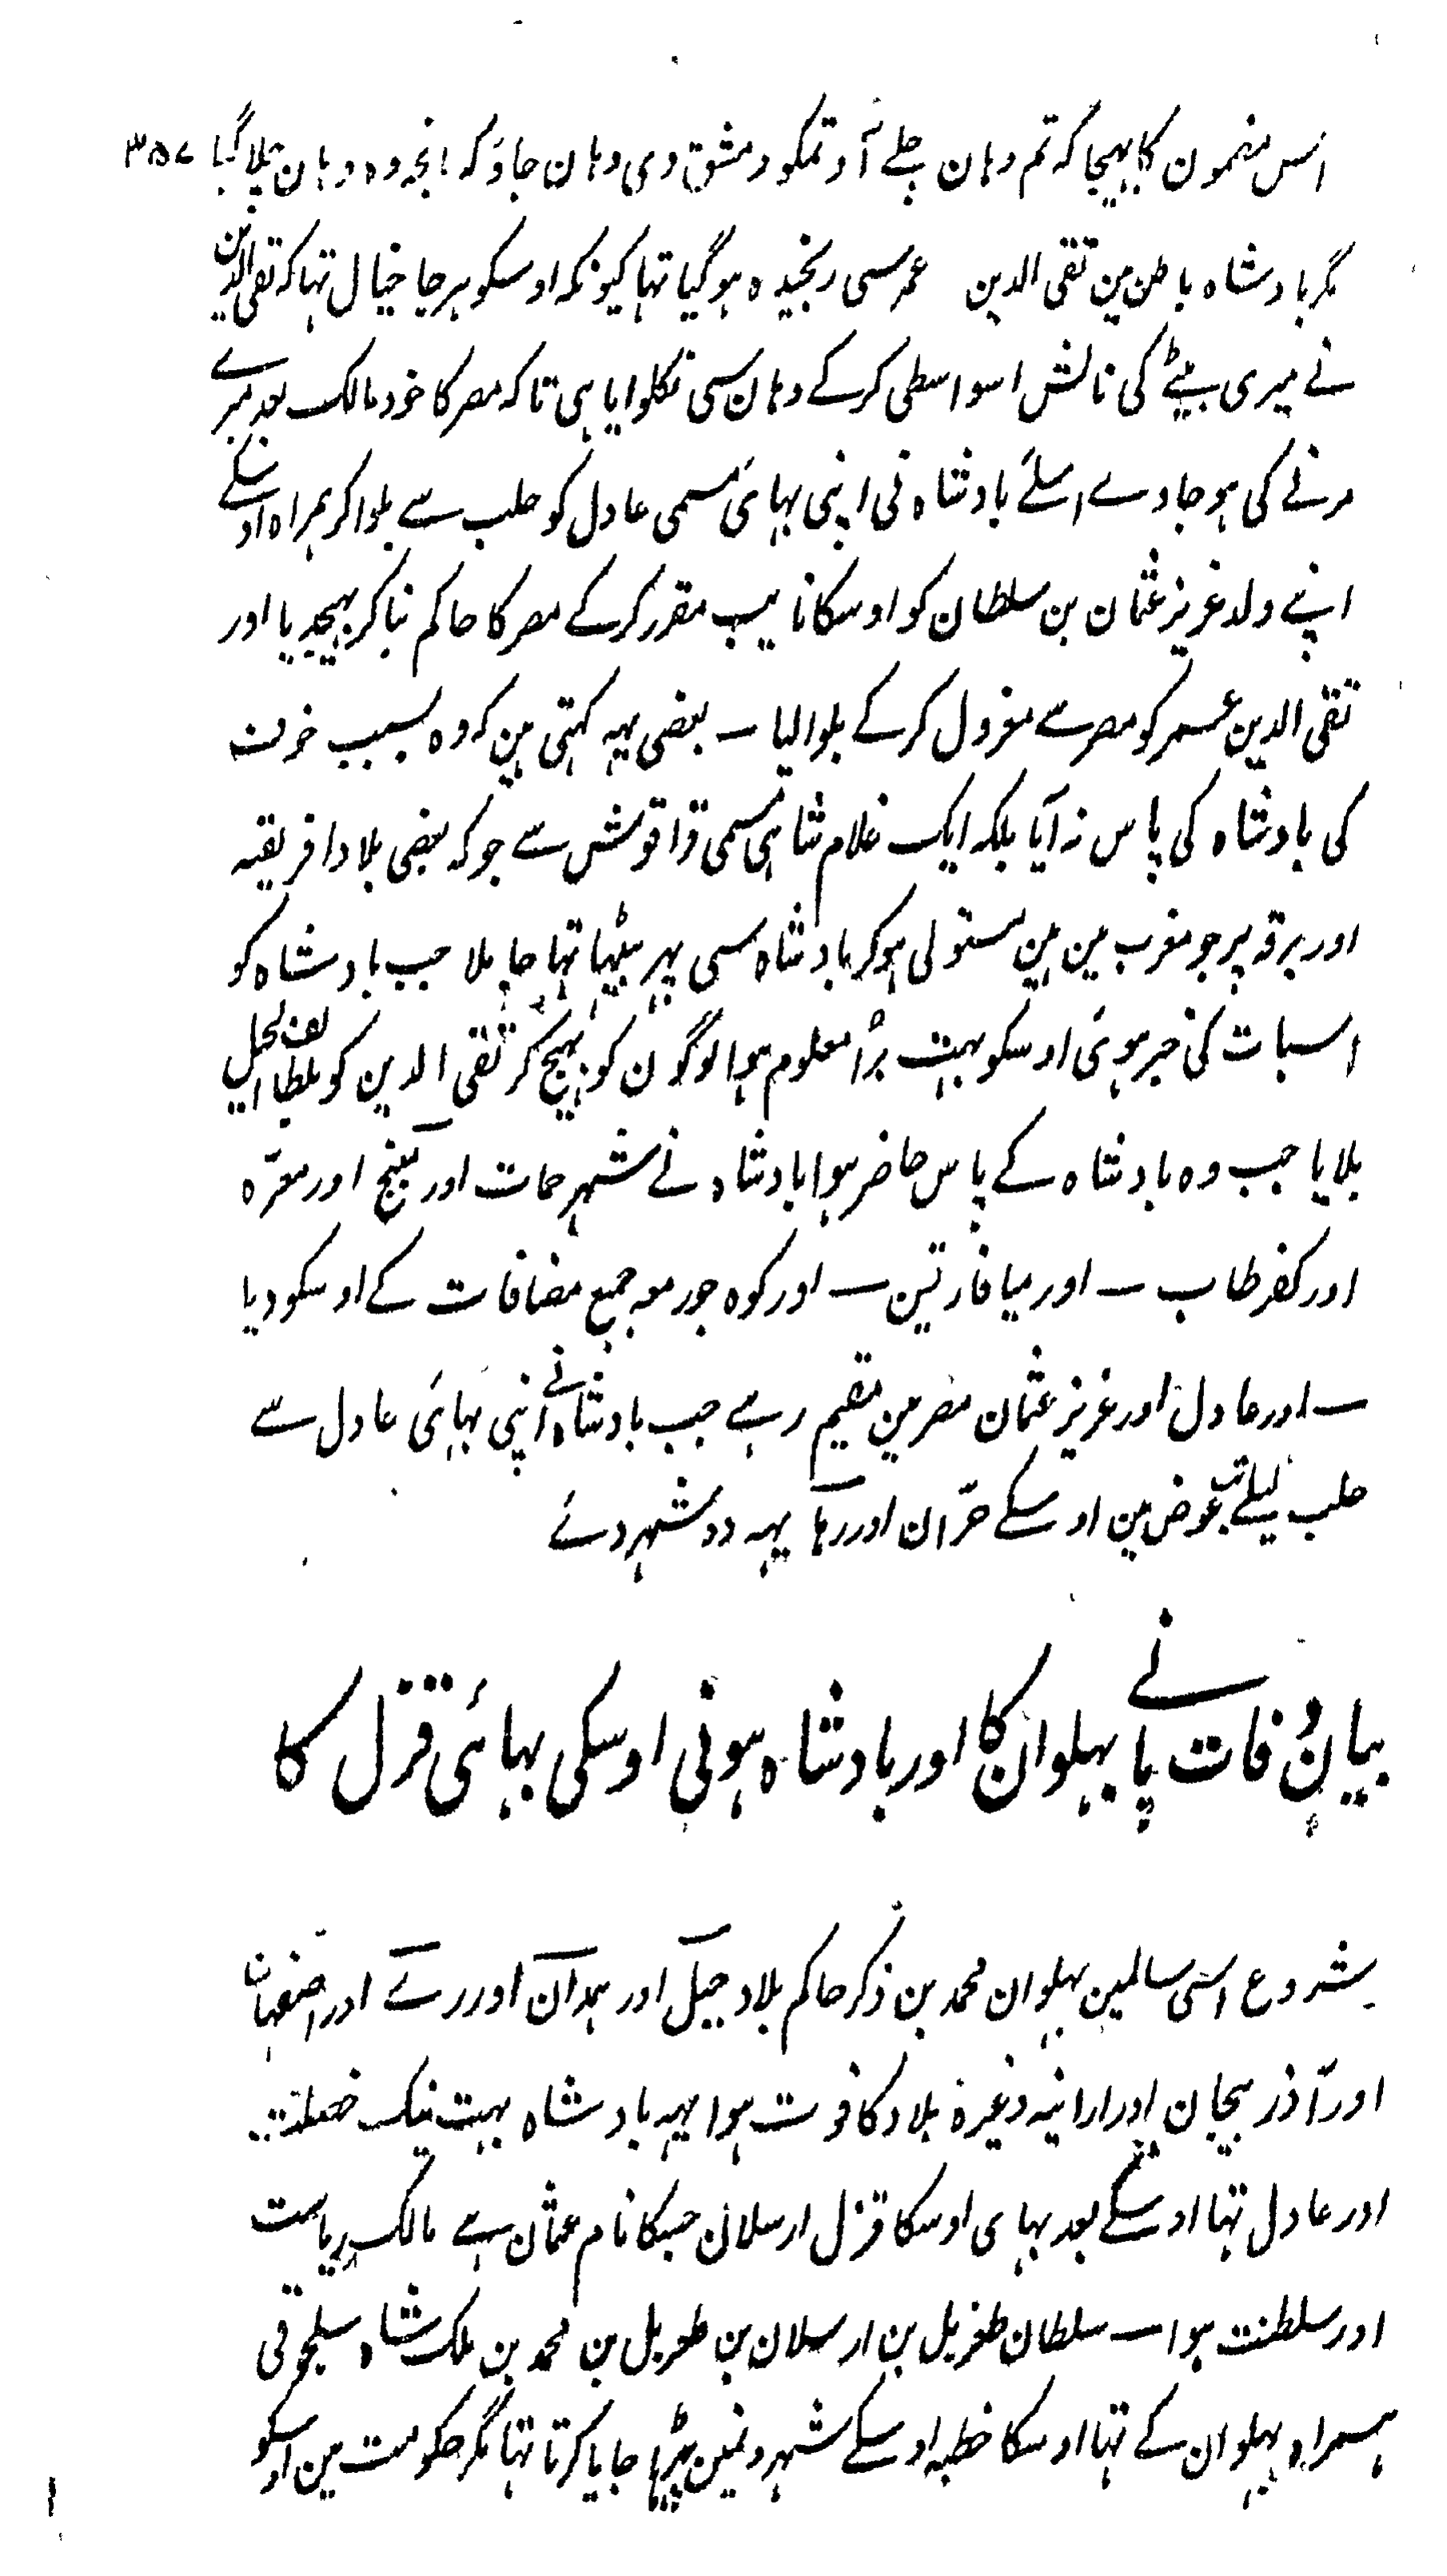 اس مضمون کا بہیجا کہ تم وہان چلے آو تمکو دمشق دی وہان جاؤ کہ انجہ وہ وہان چلا گیا ۳۵۷
مگر بادشاہ باطن مین تقی الدین عمر سی رنجیدہ ہوگیا تہا کیونکہ اوسکو ہر جا خیال تہا کہ تقی الدین
نے میری بیٹے کی نالش اسواسطی کرکے وہان سی نکلوایا ہی تاکہ مصر کا خود مالک بعد میرے
مرنے کی ہوجاوے اسلئے بادشاہ نی اپنی بہائی مسمی عادل کو حلب سے بلوا کر ہمراہ اوسکے
اپنے ولد عزیز عثمان بن سلطان کو اوسکا نایب مقرر کرکے مصر کا حاکم بنا کر بہیجدیا اور
تقی الدین عمر کو مصر سے معزول کرکے بلوا لیا ـ بعضی یہہ کہتی ہین کہ وہ بسبب خوف
کی بادشاہ کی پاس نہ آیا بلکہ ایک غلام شاہی مسمی قراقوش سے جو کہ بعضی بلاد افریقہ
اور برقہ پر جو مغرب مین ہین مستولی ہوکر بادشاہ سی پہر بیٹہا تہا جا ملا جب بادشاہ کو
اسبات کی خبر ہوئی اوسکو بہت برا معلوم ہوا لوگون کو بہیج کر تقی الدین کو بلطائف الحیل
بلایا جب وہ بادشاہ کے پاس حاضر ہوا بادشاہ نے شہر حمات اور منبج اور معرّہ
اور کفر طاب ـ اور میافارقین ـ اور کوہ جور معہ جمیع مضافات کے اوسکو دیا
ـ اور عادل اور عزیز عثمان مصر مین مقیم رہے جب بادشاہ نے اپنی بہائی عادل سے
حلب لیلے تب عوض مین اوسکے حرّان اور رہا یہہ دو شہر دئے
بیان وفات پانے پہلوان کا اور بادشاہ ہونی اوسکی بہائی قزل کا
شروع اسی سالمین پہلوان محمد بن ذکر حاکم بلاد جبل اور ہمدان اور رے اور اصفہان
اور آذر بیجان اور ارانیہ وغیرہ بلاد کا فوت ہوا یہہ بادشاہ بہت نیک خصلت
اور عادل تہا اوسکے بعد بہای اوسکا قزل ارسلان جسکا نام عثمان ہے مالک ریاست
اور سلطنت ہوا ـ سلطان طغریل بن ارسلان بن طغریل بن محمد بن ملک شاہ سلجوقی
ہمراہ پہلوان کے تہا اوسکا خطبہ اوسکے شہرونمین پڑہا جایا کرتا تہا مگر حکومت مین اوسکو